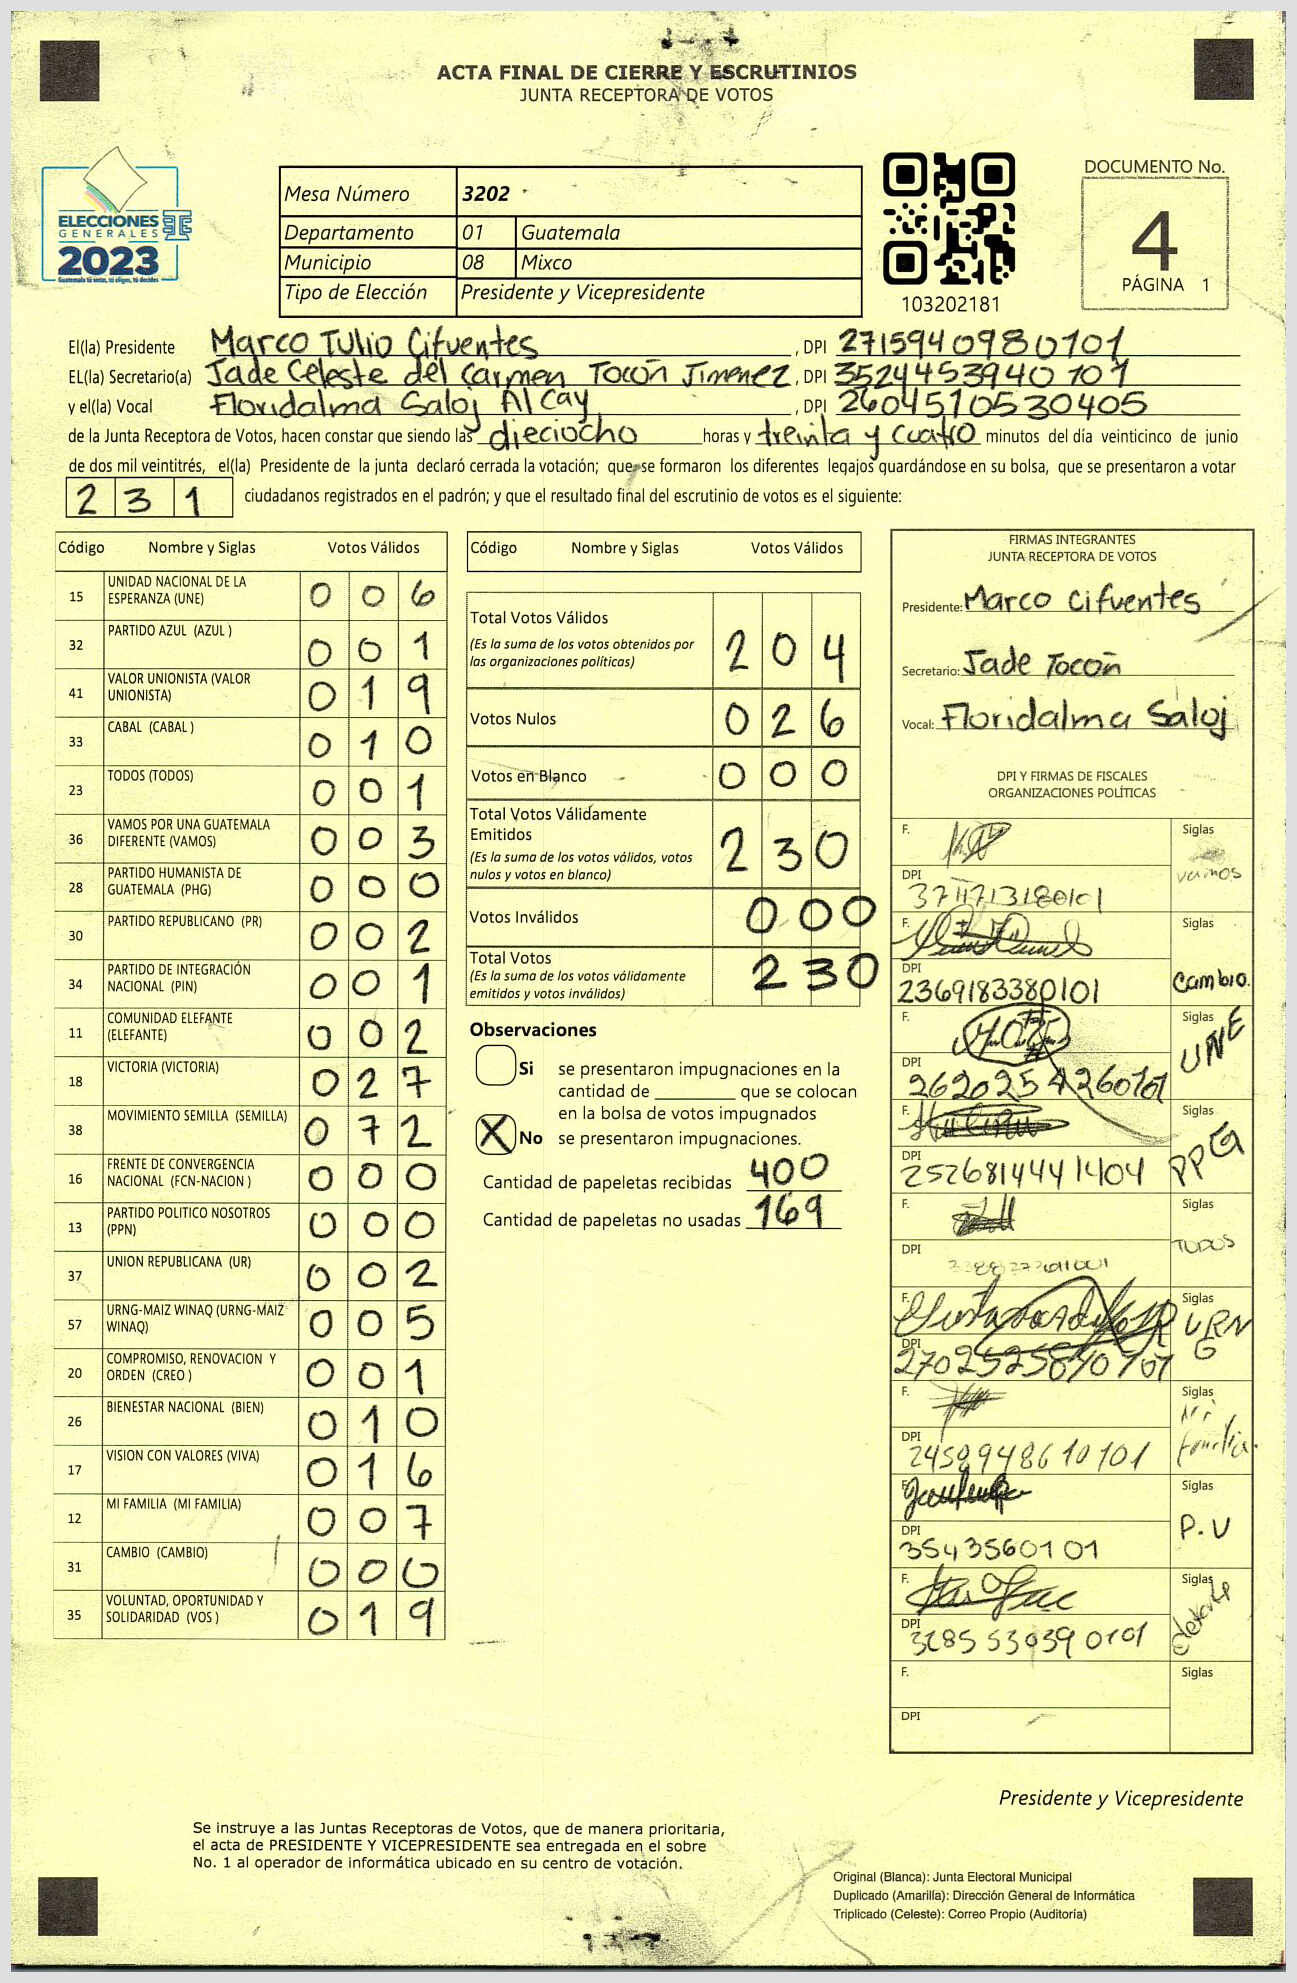 ACTA FINAL DE CIERRE Y ESCRUTINIOS
JUNTA RECEPTORA DE VOTOS
ELECCIONES
GENERALES
2023
Guatemala tú votas, tú eliges, tú decides
Mesa Número 3202
Departamento 01 Guatemala
Municipio 08 Mixco
Tipo de Elección Presidente y Vicepresidente
103202181
DOCUMENTO No.
4
PÁGINA 1
El(la) Presidente Marco Tulio Cifuentes, DPI 2715940980101
EL(la) Secretario(a) Jade Celeste del Carmen Tocón Jimenez, DPI 3524453940101
y el(la) Vocal Floridalma Saloj Alcay, DPI 2604510530405
de la Junta Receptora de Votos, hacen constar que siendo las dieciocho horas y treinta y cuatro minutos del día veinticinco de junio
de dos mil veintitrés, el(la) Presidente de la junta declaró cerrada la votación; que se formaron los diferentes legajos guardándose en su bolsa, que se presentaron a votar
231 ciudadanos registrados en el padrón; y que el resultado final del escrutinio de votos es el siguiente:
Código Nombre y Siglas Votos Válidos
15 UNIDAD NACIONAL DE LA ESPERANZA (UNE) 006
32 PARTIDO AZUL (AZUL ) 001
41 VALOR UNIONISTA (VALOR UNIONISTA) 019
33 CABAL (CABAL ) 010
23 TODOS (TODOS) 001
36 VAMOS POR UNA GUATEMALA DIFERENTE (VAMOS) 003
28 PARTIDO HUMANISTA DE GUATEMALA (PHG) 000
30 PARTIDO REPUBLICANO (PR) 002
34 PARTIDO DE INTEGRACIÓN NACIONAL (PIN) 001
11 COMUNIDAD ELEFANTE (ELEFANTE) 002
18 VICTORIA (VICTORIA) 027
38 MOVIMIENTO SEMILLA (SEMILLA) 072
16 FRENTE DE CONVERGENCIA NACIONAL (FCN-NACION ) 000
13 PARTIDO POLITICO NOSOTROS (PPN) 000
37 UNION REPUBLICANA (UR) 002
57 URNG-MAIZ WINAQ (URNG-MAIZ WINAQ) 005
20 COMPROMISO, RENOVACION Y ORDEN (CREO ) 001
26 BIENESTAR NACIONAL (BIEN) 010
17 VISION CON VALORES (VIVA) 016
12 MI FAMILIA (MI FAMILIA) 007
31 CAMBIO (CAMBIO) 000
35 VOLUNTAD, OPORTUNIDAD Y SOLIDARIDAD (VOS ) 019
Código Nombre y Siglas Votos Válidos
Total Votos Válidos 204
(Es la suma de los votos obtenidos por
las organizaciones políticas)
Votos Nulos 026
Votos en Blanco 000
Total Votos Válidamente
Emitidos 230
(Es la suma de los votos válidos, votos
nulos y votos en blanco)
Votos Inválidos 000
Total Votos 230
(Es la suma de los votos válidamente
emitidos y votos inválidos)
Observaciones
Si se presentaron impugnaciones en la
cantidad de ________ que se colocan
en la bolsa de votos impugnados
X No se presentaron impugnaciones.
Cantidad de papeletas recibidas 400
Cantidad de papeletas no usadas 169
FIRMAS INTEGRANTES
JUNTA RECEPTORA DE VOTOS
Presidente: Marco Cifuentes
Secretario: Jade Tocón
Vocal: Floridalma Saloj
DPI Y FIRMAS DE FISCALES
ORGANIZACIONES POLÍTICAS
F. Siglas vamos
DPI
F. Siglas Cambio.
DPI 2369183380101
F. Siglas UNE
DPI 2620254260101
F. Siglas PPG
DPI 2526814441404
F. Siglas TODOS
DPI
F. Siglas URNG
DPI 2702525840101
F. Siglas Mi familia.
DPI 2458948610101
F. Siglas P.U
DPI 3543560101
F. Siglas
DPI 3285530390101
F. Siglas
DPI
Presidente y Vicepresidente
Se instruye a las Juntas Receptoras de Votos, que de manera prioritaria,
el acta de PRESIDENTE Y VICEPRESIDENTE sea entregada en el sobre
No. 1 al operador de informática ubicado en su centro de votación.
Original (Blanca): Junta Electoral Municipal
Duplicado (Amarilla): Dirección General de Informática
Triplicado (Celeste): Correo Propio (Auditoría)